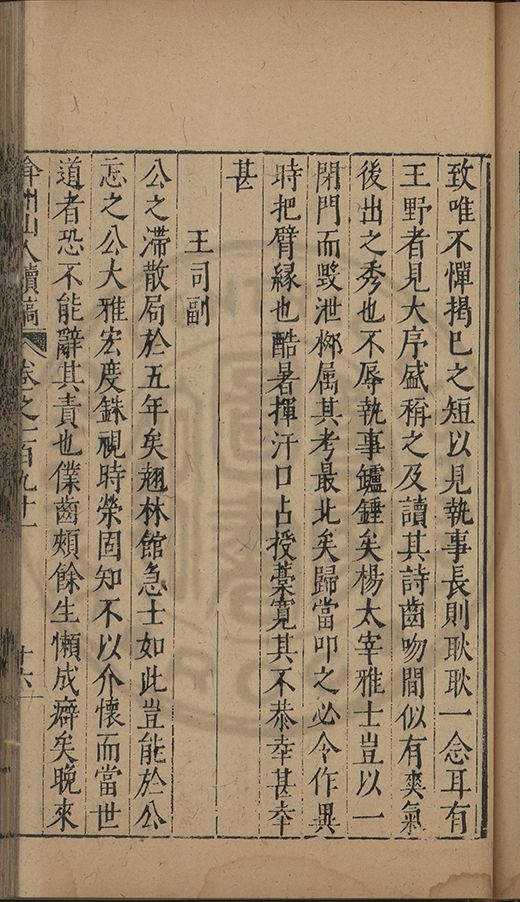 致唯不憚揭已之短以見執事長則耿耿一念耳有
王野者見大序盛稱之及讀其詩齒吻間似有爽氣
後出之秀也不辱執事鑪錘矣楊太宰雅士豈以一
閉門而毀泄桞属其考最北矣歸當叩之必令作異
時把臂縁也酷暑揮汗口占授藁寛其不恭幸甚幸
甚
王司副
公之滯散局於五年矣趐林館急士如此豈能於公
忘之公大雅宏度銖視時榮固知不以介懷而當世
道者恐不能辭其責也僕齒頰餘生懶成癖矣晚來
弇州山人續稿 卷之一百九十一 十六